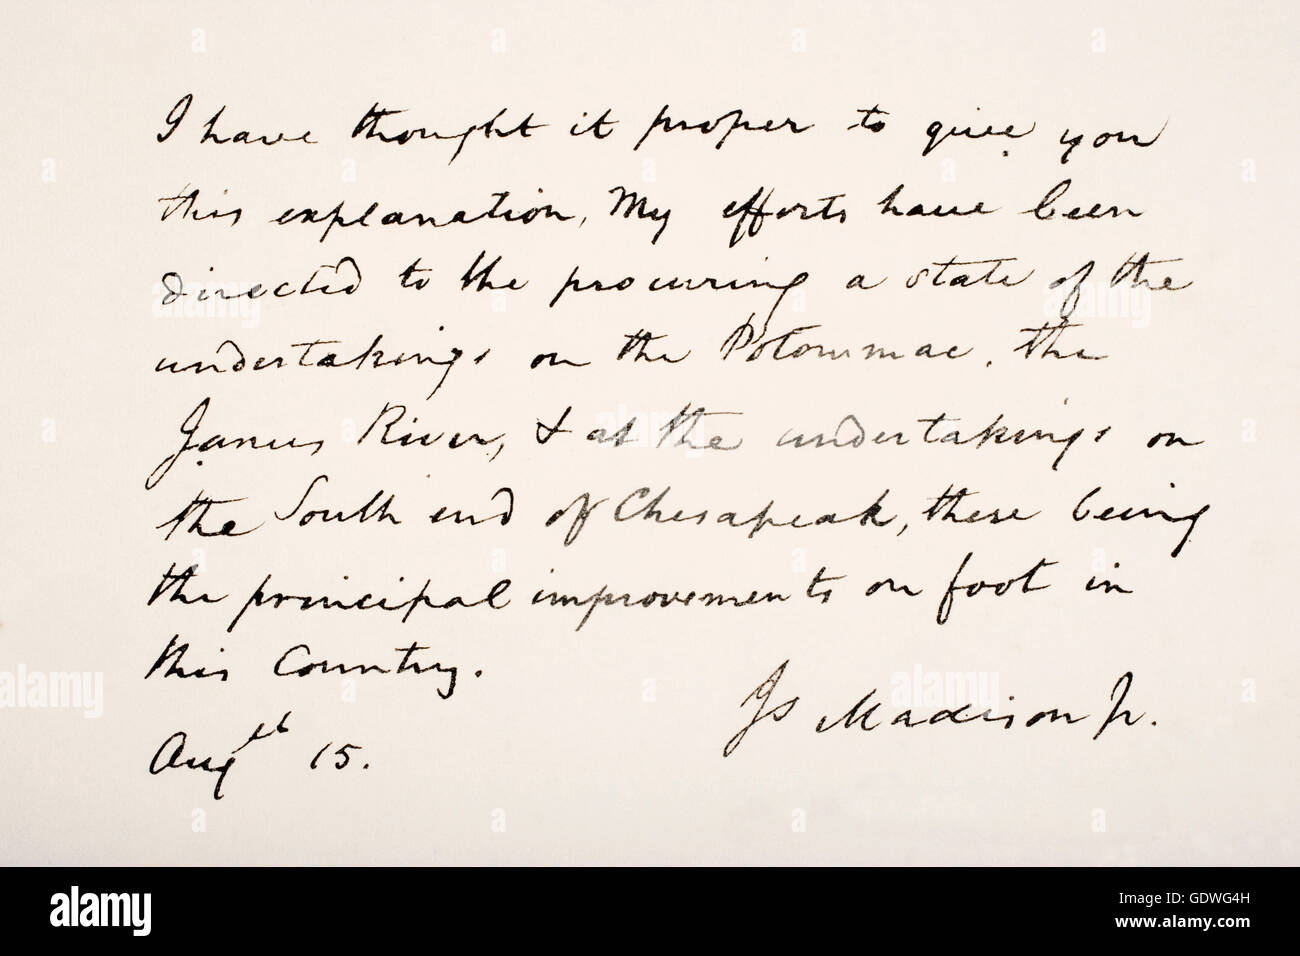 I have thought it proper to give you
this explanation, My efforts have been
directed to the procuring a state of the
undertakings on the Potowmac, the
James River, & at the undertakings on
the South end of Chesapeak, these being
the principal improvements on foot in
this Country.
Js Madison Jr.
Augst 15.
alamy
Image ID: GDWG4H
www.alamy.com